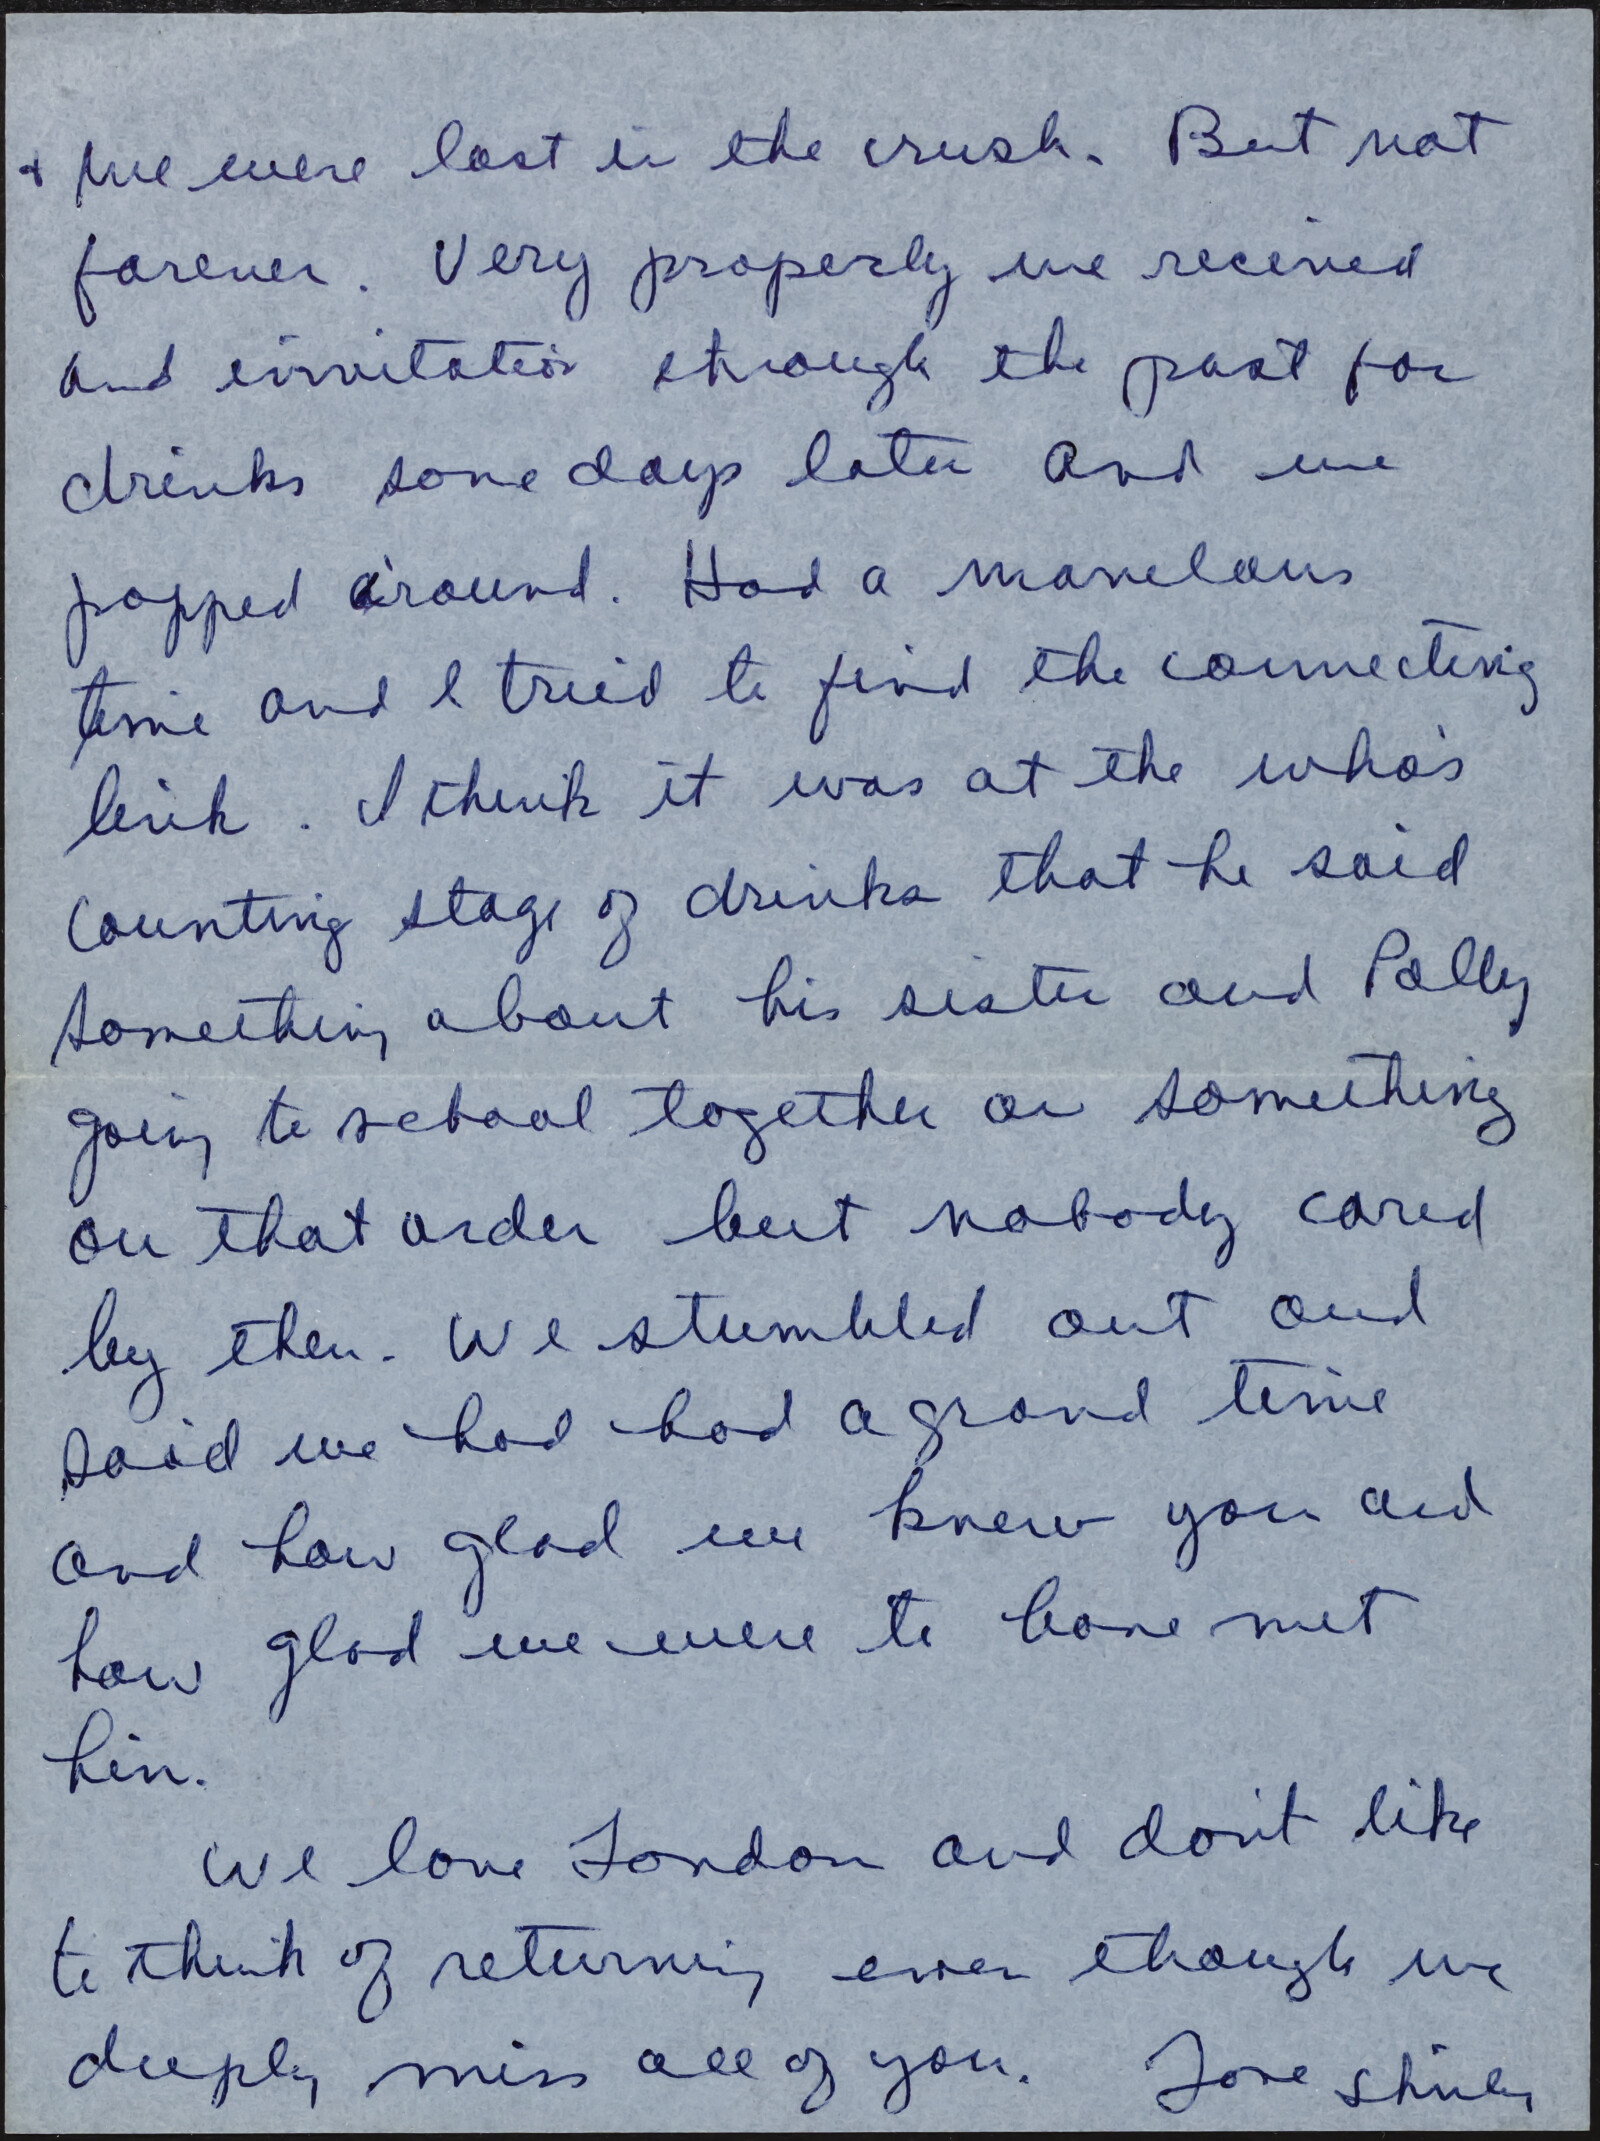 + we were lost in the crush. But not
forever. Very properly we received
and invitation through the post for
drinks some days later and we
popped around. Had a marvelous
time and I tried to find the connecting
link. I think it was at the who's
counting stage of drinks that he said
something about his sister and Polly
going to school together or something
on that order but nobody cared
by then. We stumbled out and
said we had had a grand time
and how glad we knew you and
how glad we were to have met
him.
We love London and don't like
to think of returning even though we
deeply miss all of you. Love Shirley